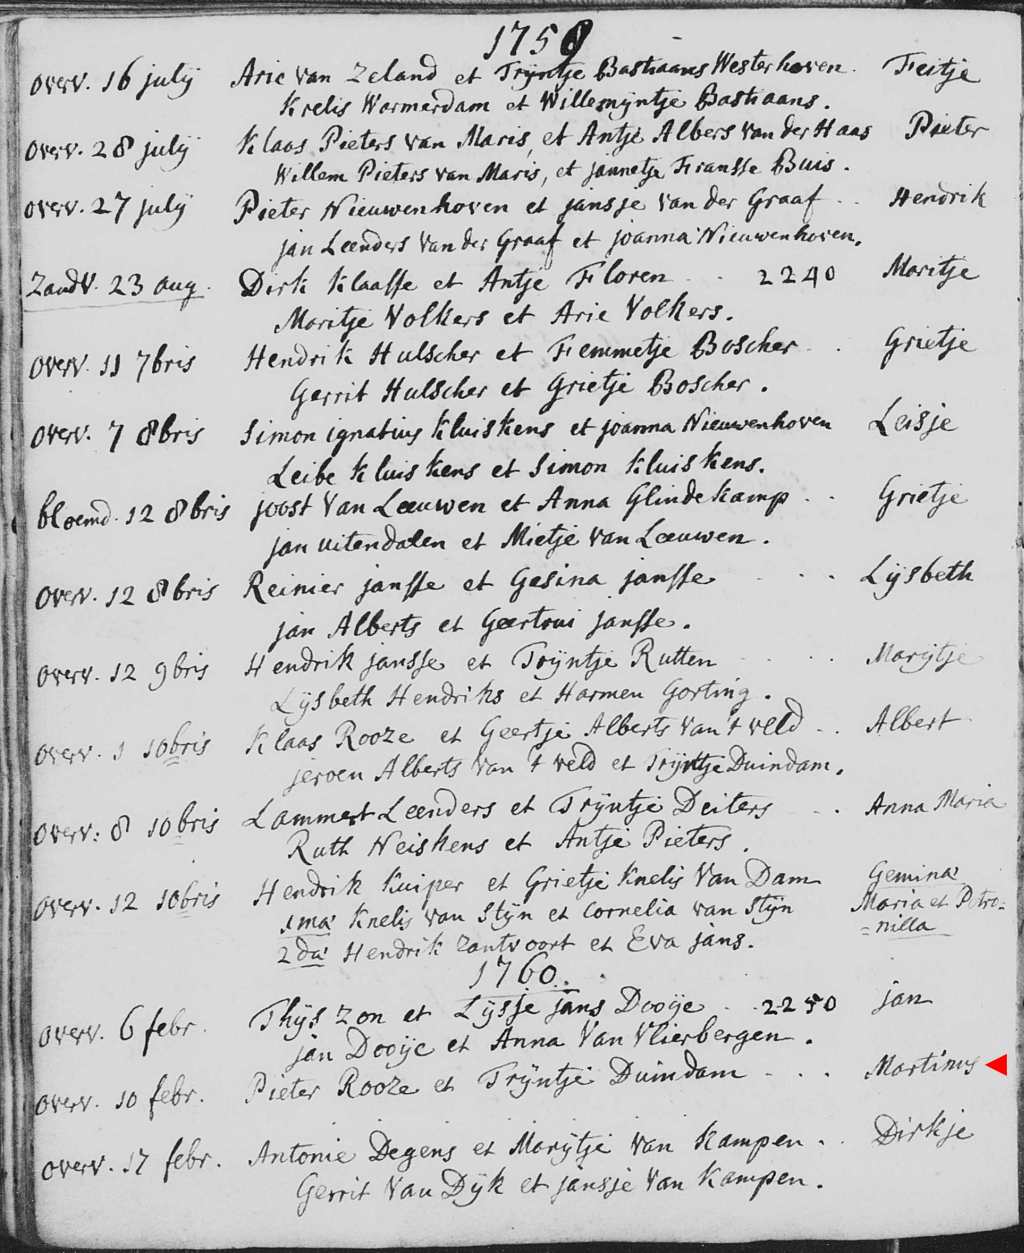 1758
overv. 16 julÿ Arie van Zeland et Trÿntje Bastiaans Westerhoven. Feitje
Krelis Warmerdam et Willemÿntje Bastiaans.
overv. 28 julÿ Klaas Pieters van Maris, et Antje Albers van der Haas Pieter
Willem Pieters van Maris, et jannetje Fransse Buis.
overv. 27 julÿ Pieter Nieuwenhoven et jansje van der Graaf . . Hendrik
jan Leenders van der Graaf et joanna Nieuwenhoven.
Zandv. 23 aug. Dirk Klaasse et Antje Floren . . 2240 Maritje
Maritje Volkers et Arie Volkers.
overv. 11 7bris Hendrik Hulscher et Femmetje Boscher . . Grietje
Gerrit Hulscher et Grietje Boscher.
overv. 7 8bris Simon ignatius Kluiskens et joanna Nieuwenhoven Leisje
Leibe Kluiskens et Simon Kluiskens.
bloemd. 12 8bris joost van Leeuwen et Anna Glindekamp . . Grietje
jan uitendalen et Mietje van Leeuwen.
overv. 12 8bris Reinier jansse et Gesina jansse . . . Lÿsbeth
jan Alberts et Geertrui jansse.
overv. 12 9bris Hendrik jansse et Trÿntje Rutten . . . Marÿtje
Lÿsbeth Hendriks et Harmen Gorting.
overv. 1 10bris Klaas Rooze et Geertje Alberts van 't veld . . Albert
jeroen Alberts van 't veld et Trÿntje Duindam.
overv: 8 10bris Lammert Leenders et Trÿntje Deiters . . Anna Maria
Ruth Neiskens et Antje Pieters.
overv. 12 10bris Hendrik Kuiper et Grietje Knelis van Dam Gemina:
1ma: Knelis van Stÿn et Cornelia van Stÿn Maria et Petro=
2da: Hendrik Zantvoort et Eva jans. =nilla
1760.
overv. 6 febr. Thÿs Zon et Lÿsje jans Dooÿe . . 2250 jan
jan Dooÿe et Anna Van Vlierbergen.
overv. 10 febr. Pieter Rooze et Trÿntje Duindam . . . Martinus
overv. 17 febr. Antonie Degens et Marÿtje van Kampen . . Dirkje
Gerrit van Dÿk et jansje van Kampen.